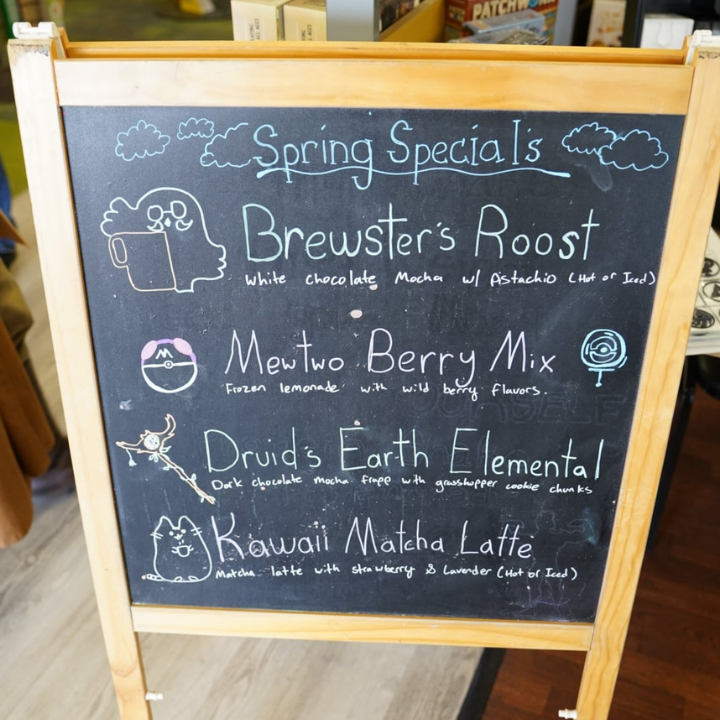 PATCHWORK
Spring Specials
Brewster's Roost
White chocolate Mocha w/ Pistachio (Hot or Iced)
M
Mewtwo Berry Mix
Frozen lemonade with wild berry flavors.
Druid's Earth Elemental
Dark chocolate mocha frapp with grasshopper cookie chunks
Kawaii Matcha Latte
Matcha latte with strawberry & Lavender (Hot or Iced)